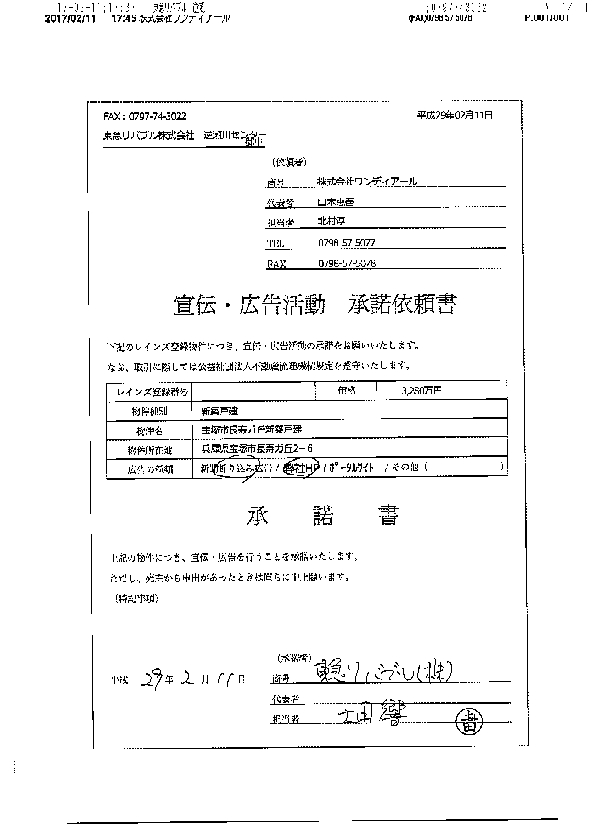 2017/02/11 17:45 株式会社ワンディアール (FAX)0798 57 5078 P.001/001
FAX：0797-74-3022 平成29年02月11日
東急リバブル株式会社 逆瀬川センター
御中
（依頼者）
商号 株式会社ワンディアール
代表者
担当者 北村淳
TEL 0798-57-5077
FAX 0798-57-5078
宣伝・広告活動 承諾依頼書
下記のレインズ登録物件につき、宣伝・広告活動の承諾をお願いいたします。
なお、取引に際しては公益社団法人不動産流通機構規定を遵守いたします。
レインズ登録番号 価格 3,280万円
物件種別 新築戸建
物件名 宝塚市長寿ガ丘新築戸建
物件所在地 兵庫県宝塚市長寿ガ丘2－6
広告の種類 新聞折り込み広告 / 弊社HP / ポータルサイト / その他（ ）
承 諾 書
上記の物件につき、宣伝・広告を行うことを承諾いたします。
ただし、売主から申出があったときは直ちに中止願います。
（特記事項）
（承諾者）
平成 29年 2月 11日
商号 東急リバブル(株)
代表者
担当者